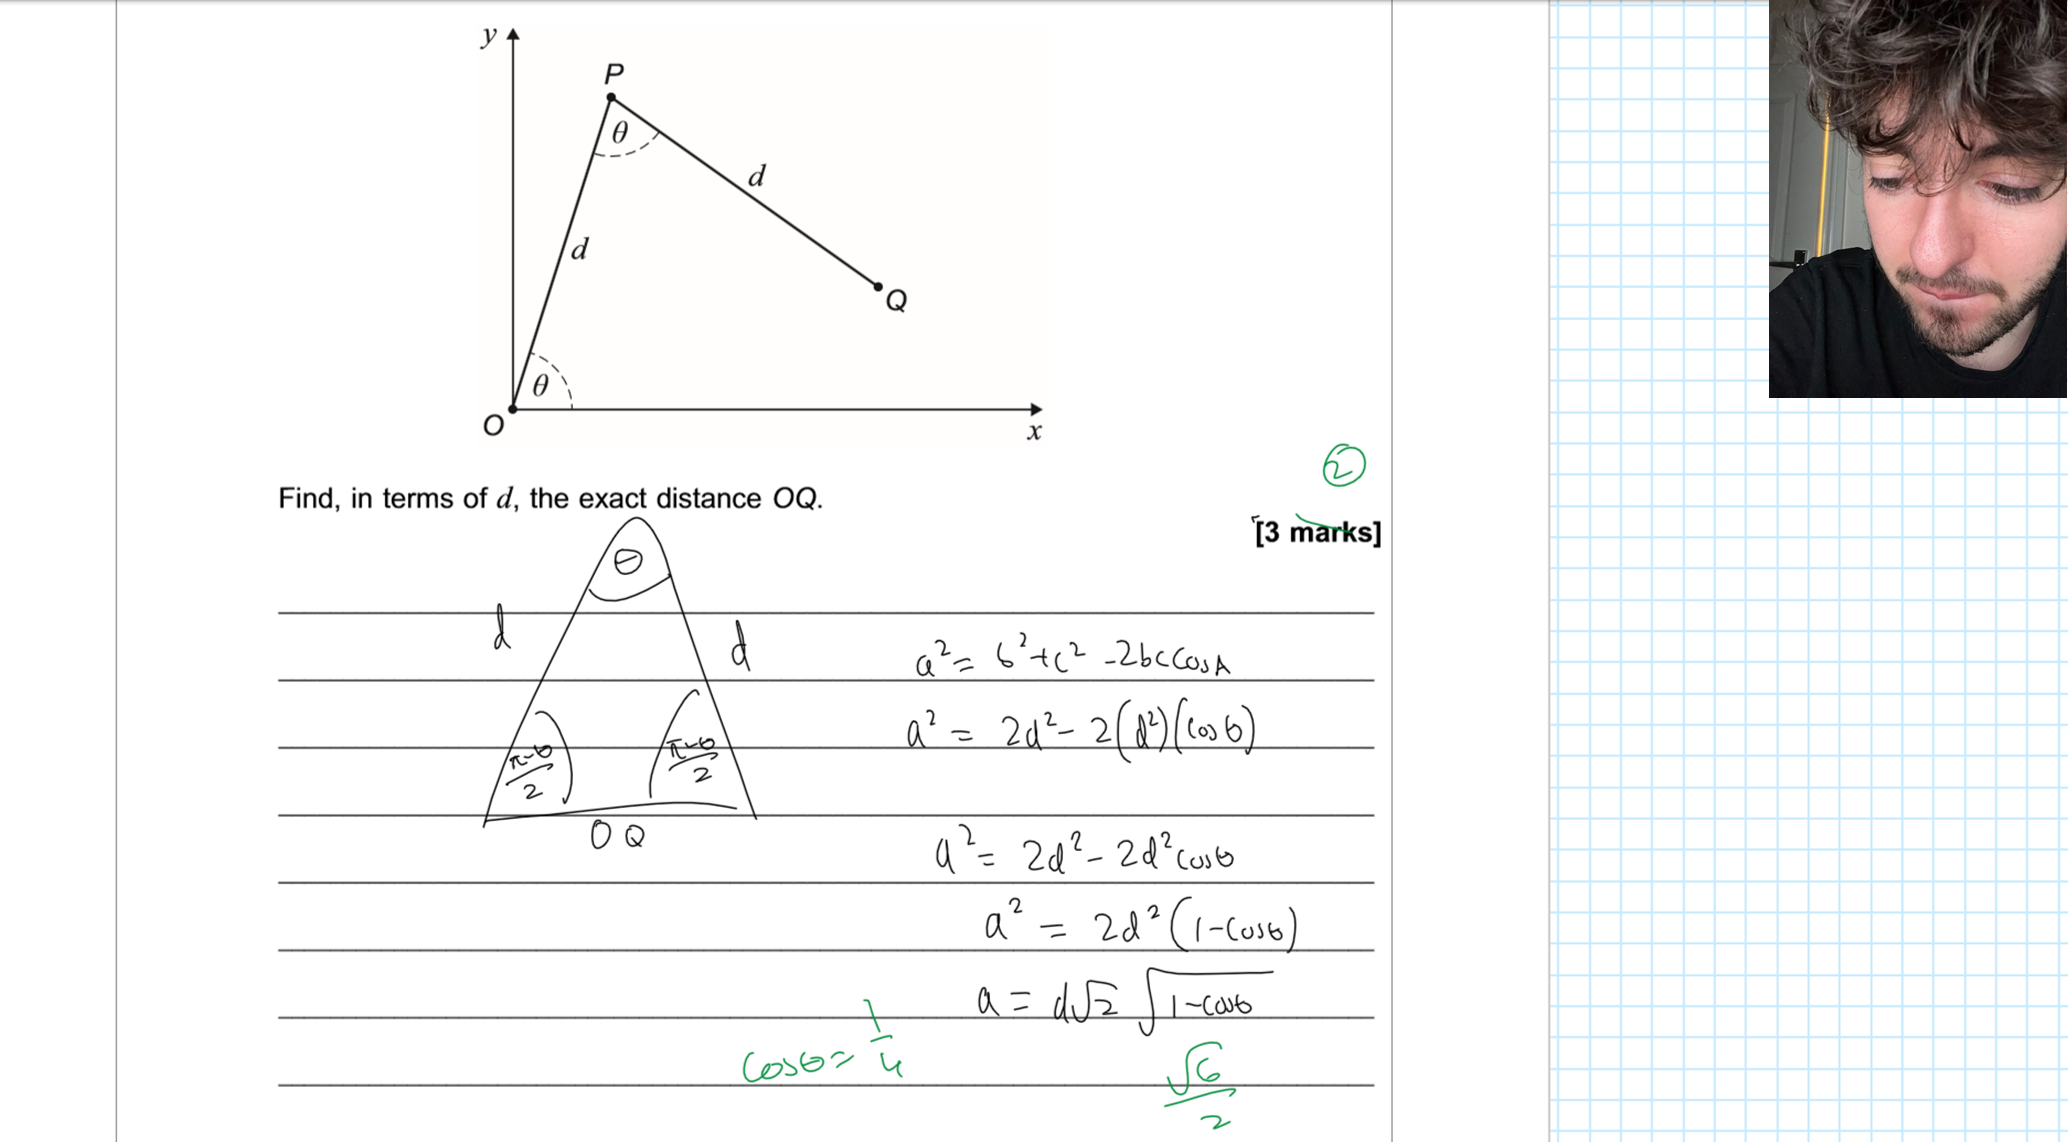 y
P
θ
d
d
Q
θ
O
x
②
Find, in terms of d, the exact distance OQ.
[3 marks]
θ
d
d
a² = b² + c² - 2bc cosA
a² = 2d² - 2(d²)(cosθ)
π-θ/2
π-θ/2
OQ
a² = 2d² - 2d² cosθ
a² = 2d² (1-cosθ)
a = d√2 √1-cosθ
cosθ = 1/4
√6/2